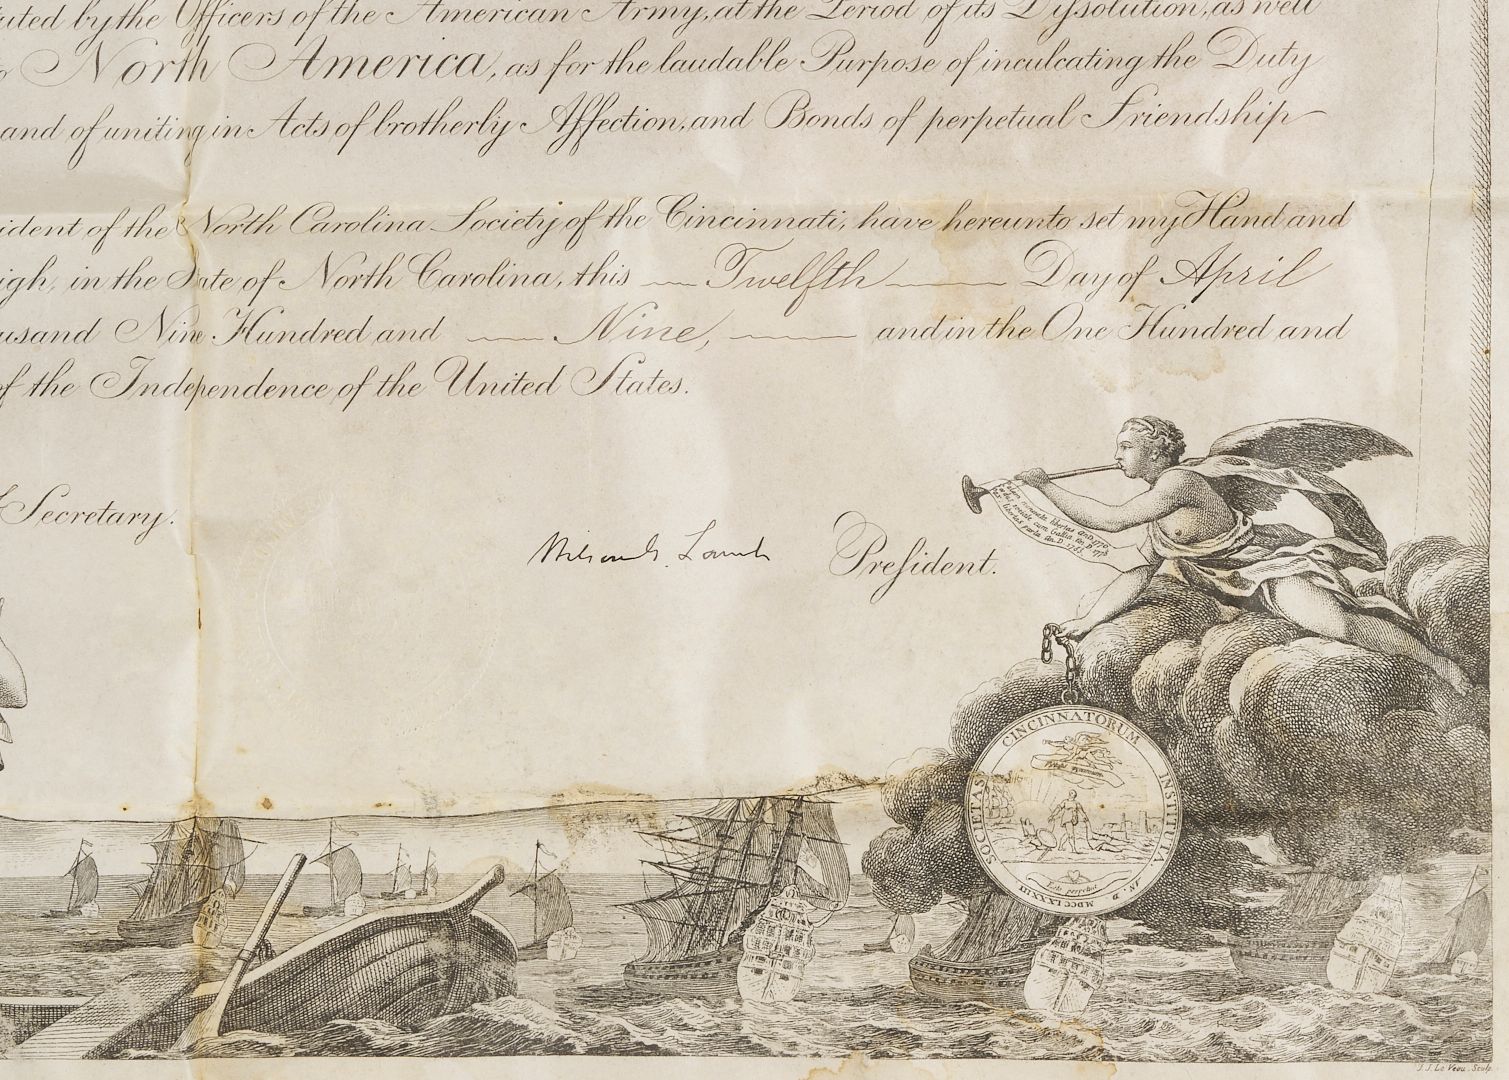 uted by the Officers of the American Army, at the Period of its Dissolution, as well
North America, as for the laudable Purpose of inculcating the Duty
and of uniting in Acts of brotherly Affection, and Bonds of perpetual Friendship
ident of the North Carolina Society of the Cincinnati, have hereunto set my Hand and
igh, in the State of North Carolina, this Twelfth Day of April
usand Nine Hundred and Nine, and in the One Hundred and
of the Independence of the United States.
Secretary.
Wilson G. Lamb President.
libertas anno 1776
societ. cum Gallia An. D. 1778
libertas parta An. D. 1783
SOCIETAS CINCINNATORUM INSTITUTA AN. D. MDCCLXXXIII
Esto perpetua
J. J. Le Veau. Sculp.